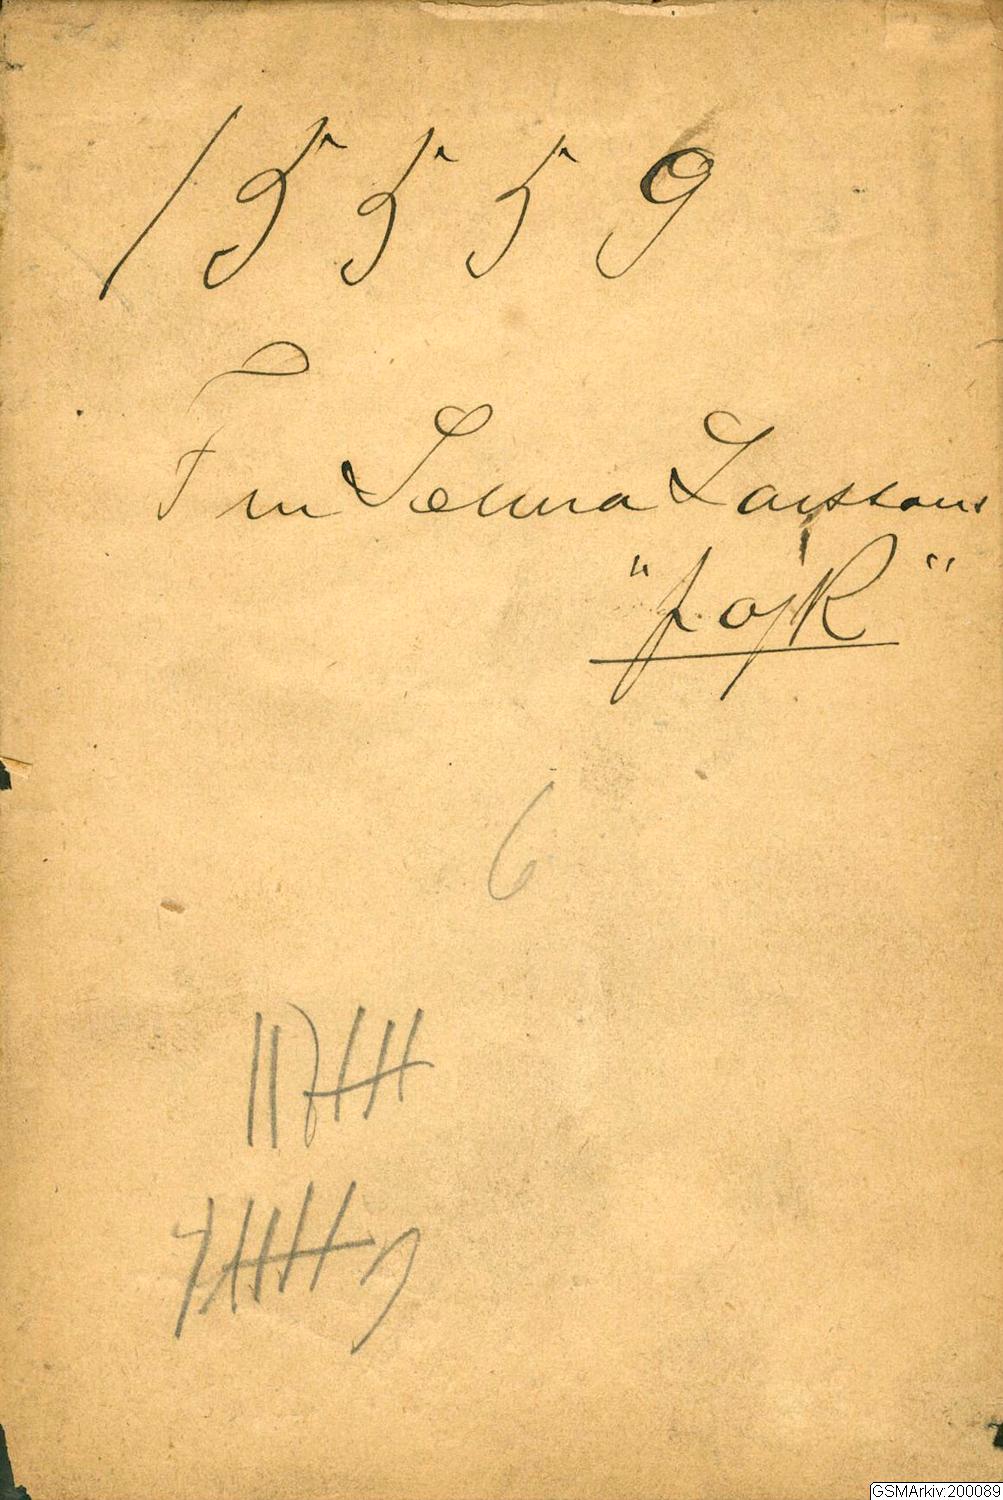 15559
Fru Selma Larssons
"pojk"
6
GSMArkiv:200089